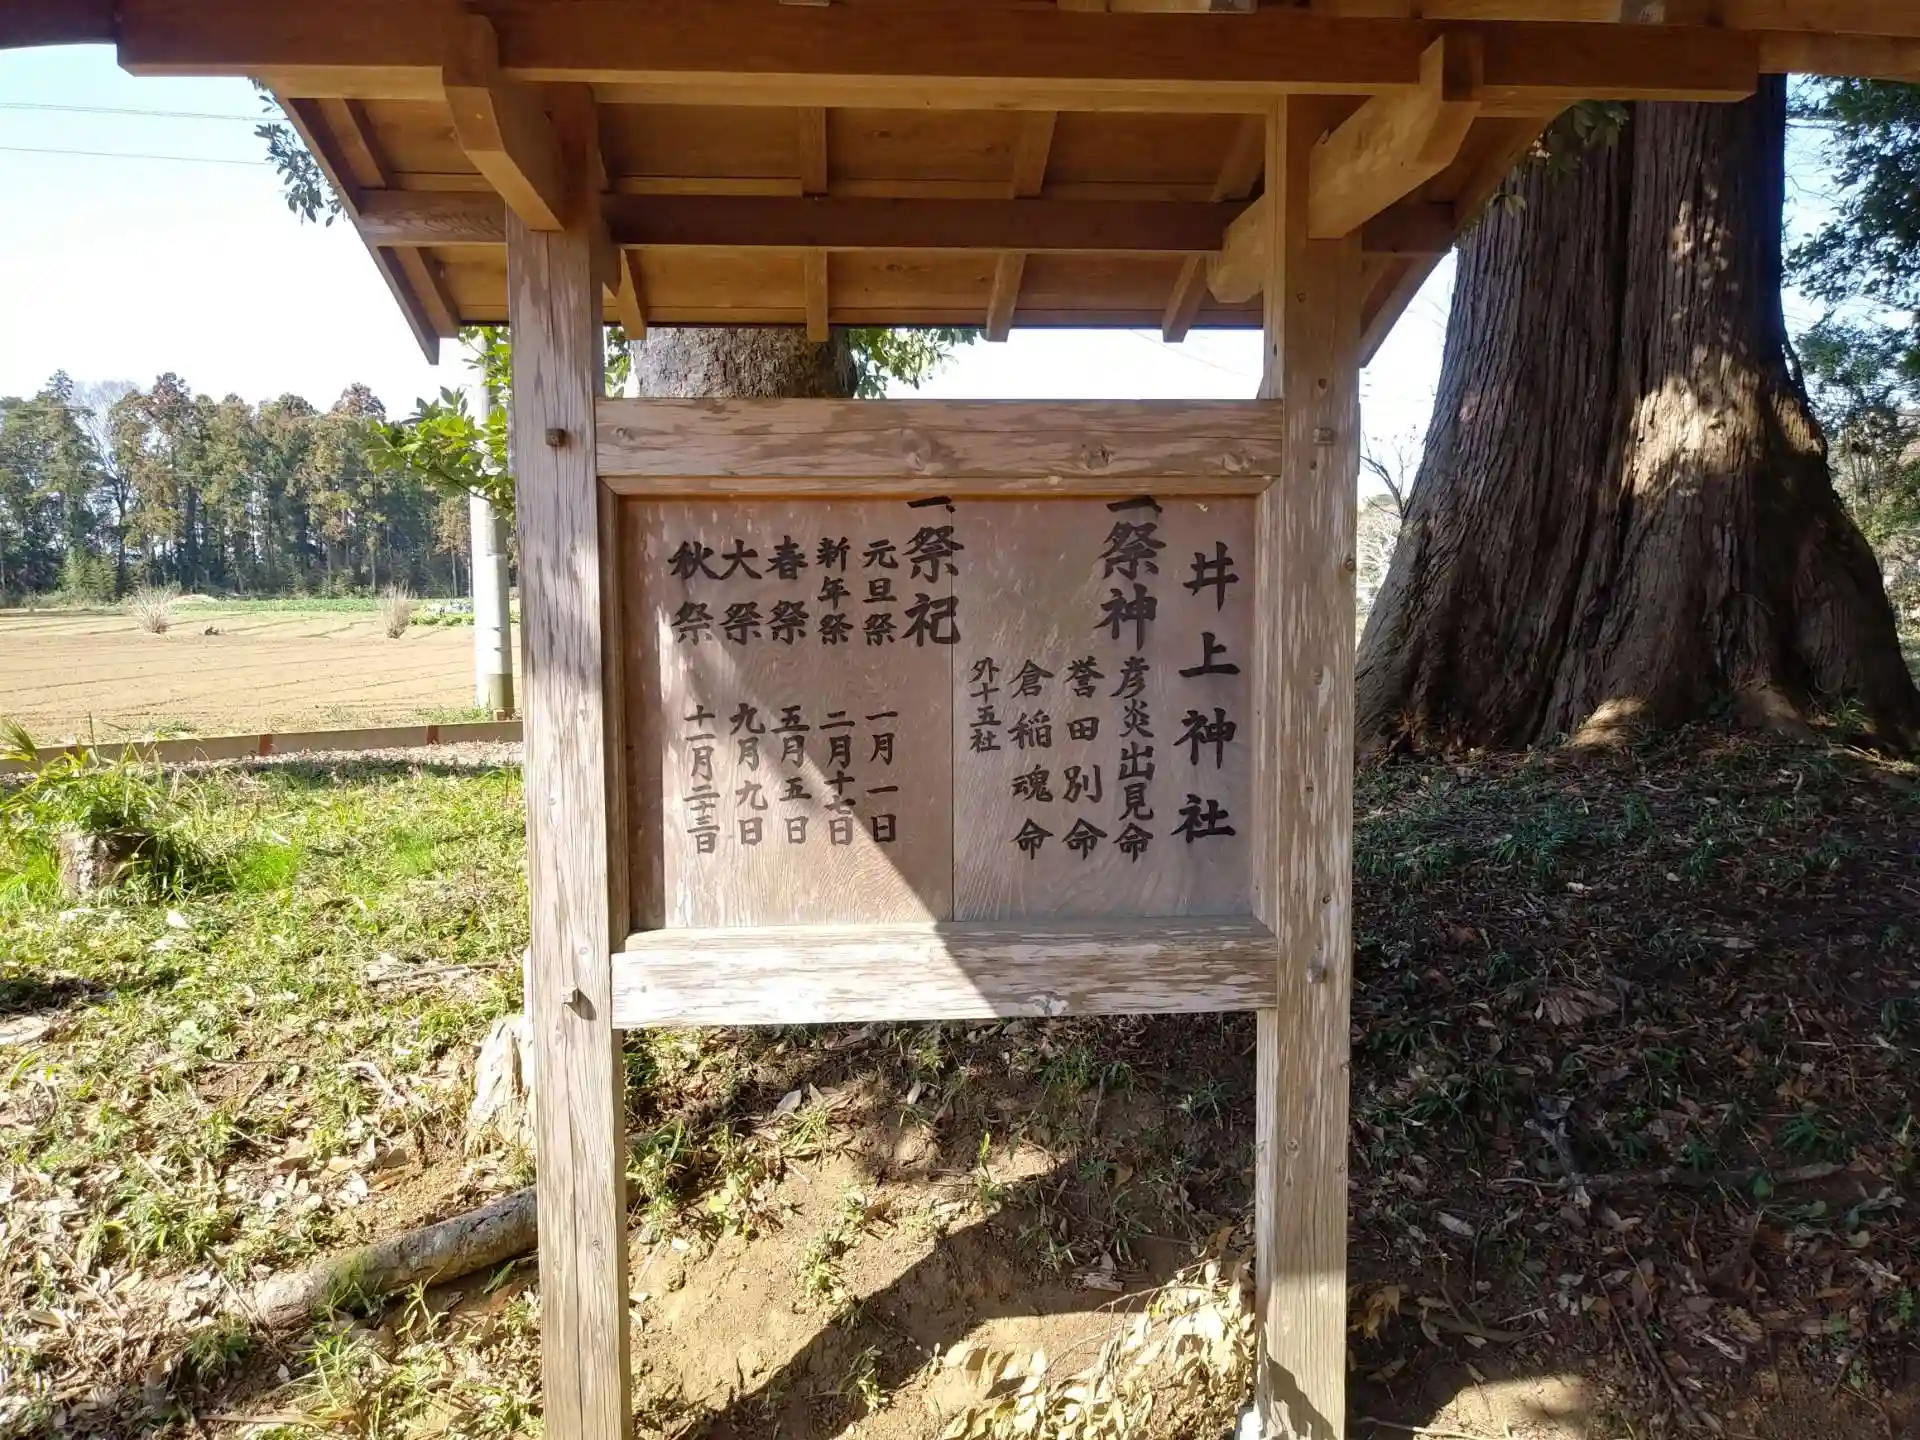 井上神社
一、祭神
彦炎出見命
誉田別命
倉稲魂命
外十五社
一、祭祀
元旦祭 一月一日
新年祭 二月十七日
春祭 五月五日
大祭 九月九日
秋祭 十一月二十三日